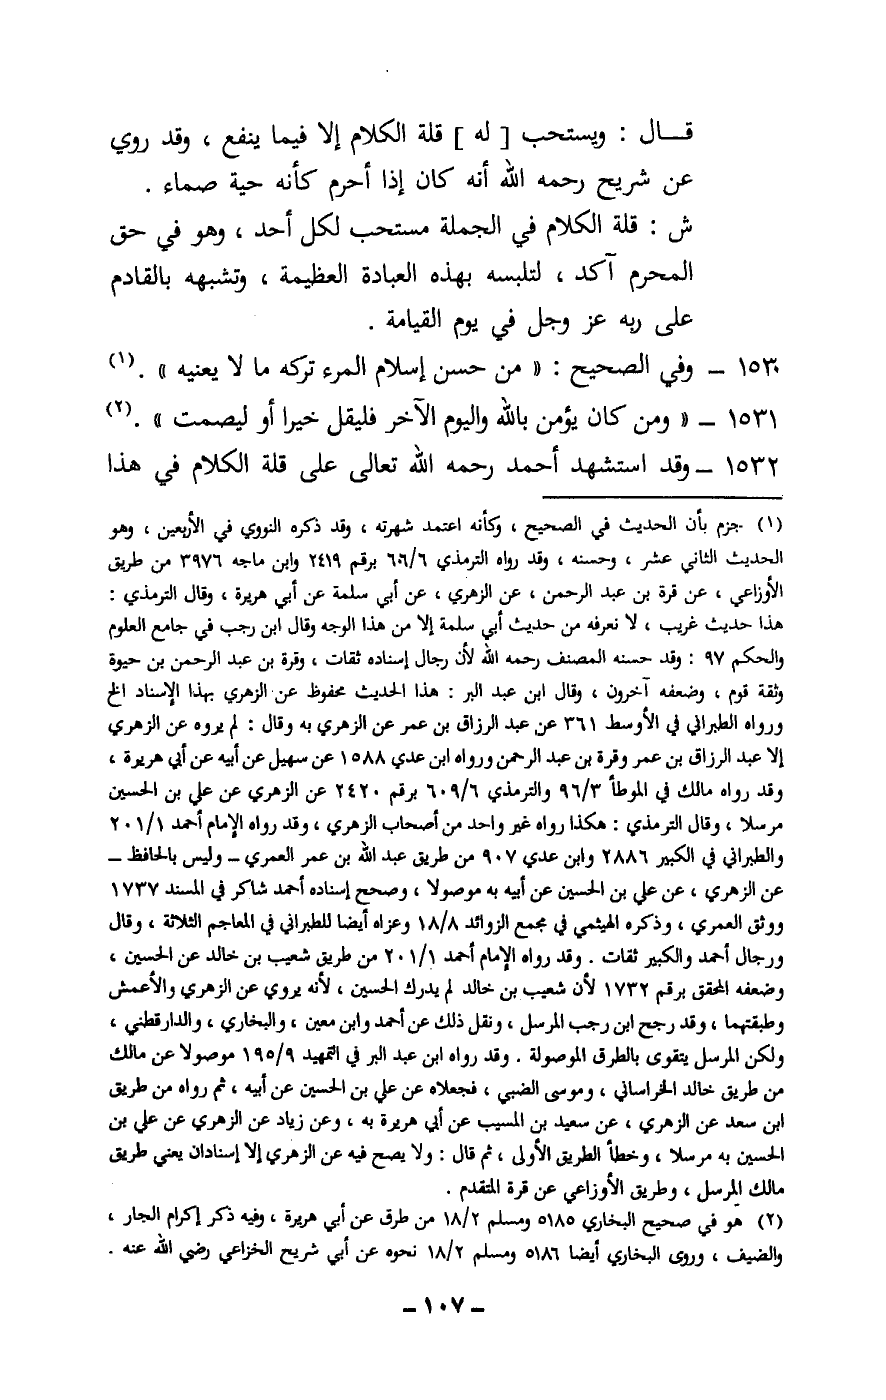 قـــال : ويستحب [ له ] قلة الكلام إلا فيما ينفع ، وقد روي
عن شريح رحمه الله أنه كان إذا أحرم كأنه حية صماء .
ش : قلة الكلام في الجملة مستحب لكل أحد ، وهو في حق
المحرم آكد ، لتلبسه بهذه العبادة العظيمة ، وتشبهه بالقادم
على ربه عز وجل في يوم القيامة .
١٥٣٠ – وفي الصحيح : « من حسن إسلام المرء تركه ما لا يعنيه » .(١)
١٥٣١ – « ومن كان يؤمن بالله واليوم الآخر فليقل خيرا أو ليصمت » .(٢)
١٥٣٢ – وقد استشهد أحمد رحمه الله تعالى على قلة الكلام في هذا
(١) جزم بأن الحديث في الصحيح ، وكأنه اعتمد شهرته ، وقد ذكره النووي في الأربعين ، وهو
الحديث الثاني عشر ، وحسنه ، وقد رواه الترمذي ٦٠٦/٦ برقم ٢٤١٩ وابن ماجه ٣٩٧٦ من طريق
الأوزاعي ، عن قرة بن عبد الرحمن ، عن الزهري ، عن أبي سلمة عن أبي هريرة ، وقال الترمذي :
هذا حديث غريب ، لا نعرفه من حديث أبي سلمة إلا من هذا الوجه وقال ابن رجب في جامع العلوم
والحكم ٩٧ : وقد حسنه المصنف رحمه الله لأن رجال إسناده ثقات ، وقرة بن عبد الرحمن بن حيوة
وثقة قوم ، وضعفه آخرون ، وقال ابن عبد البر : هذا الحديث محفوظ عن الزهري بهذا الإسناد الخ
ورواه الطبراني في الأوسط ٣٦١ عن عبد الرزاق بن عمر عن الزهري به وقال : لم يروه عن الزهري
إلا عبد الرزاق بن عمر وقرة بن عبد الرحمن ورواه ابن عدي ١٥٨٨ عن سهيل عن أبيه عن أبي هريرة ،
وقد رواه مالك في الموطأ ٩٦/٣ والترمذي ٦٠٩/٦ برقم ٢٤٢٠ عن الزهري عن علي بن الحسين
مرسلا ، وقال الترمذي : هكذا رواه غير واحد من أصحاب الزهري ، وقد رواه الإمام أحمد ٢٠١/١
والطبراني في الكبير ٢٨٨٦ وابن عدي ٩٠٧ من طريق عبد الله بن عمر العمري – وليس بالحافظ –
عن الزهري ، عن علي بن الحسين عن أبيه به موصولا ، وصحح إسناده أحمد شاكر في المسند ١٧٣٧
ووثق العمري ، وذكره الهيثمي في مجمع الزوائد ١٨/٨ وعزاه أيضا للطبراني في المعاجم الثلاثة ، وقال
ورجال أحمد والكبير ثقات . وقد رواه الإمام أحمد ٢٠١/١ من طريق شعيب بن خالد عن الحسين ،
وضعفه المحقق برقم ١٧٣٢ لأن شعيب بن خالد لم يدرك الحسين ، لأنه يروي عن الزهري والأعمش
وطبقتهما ، وقد رجح ابن رجب المرسل ، ونقل ذلك عن أحمد وابن معين ، والبخاري ، والدارقطني ،
ولكن المرسل يتقوى بالطرق الموصولة . وقد رواه ابن عبد البر في التمهيد ١٩٥/٩ موصولا عن مالك
من طريق خالد الخراساني ، وموسى الضبي ، فجعلاه عن علي بن الحسين عن أبيه ، ثم رواه من طريق
ابن سعد عن الزهري ، عن سعيد بن المسيب عن أبي هريرة به ، وعن زياد عن الزهري عن علي بن
الحسين به مرسلا ، وخطأ الطريق الأولى ، ثم قال : ولا يصح فيه عن الزهري إلا إسنادان يعني طريق
مالك المرسل ، وطريق الأوزاعي عن قرة المتقدم .
(٢) هو في صحيح البخاري ٥١٨٥ ومسلم ١٨/٢ من طرق عن أبي هريرة ، وفيه ذكر إكرام الجار ،
والضيف ، وروى البخاري أيضا ٥١٨٦ ومسلم ١٨/٢ نحوه عن أبي شريح الخزاعي رضي الله عنه .
– ١٠٧ –